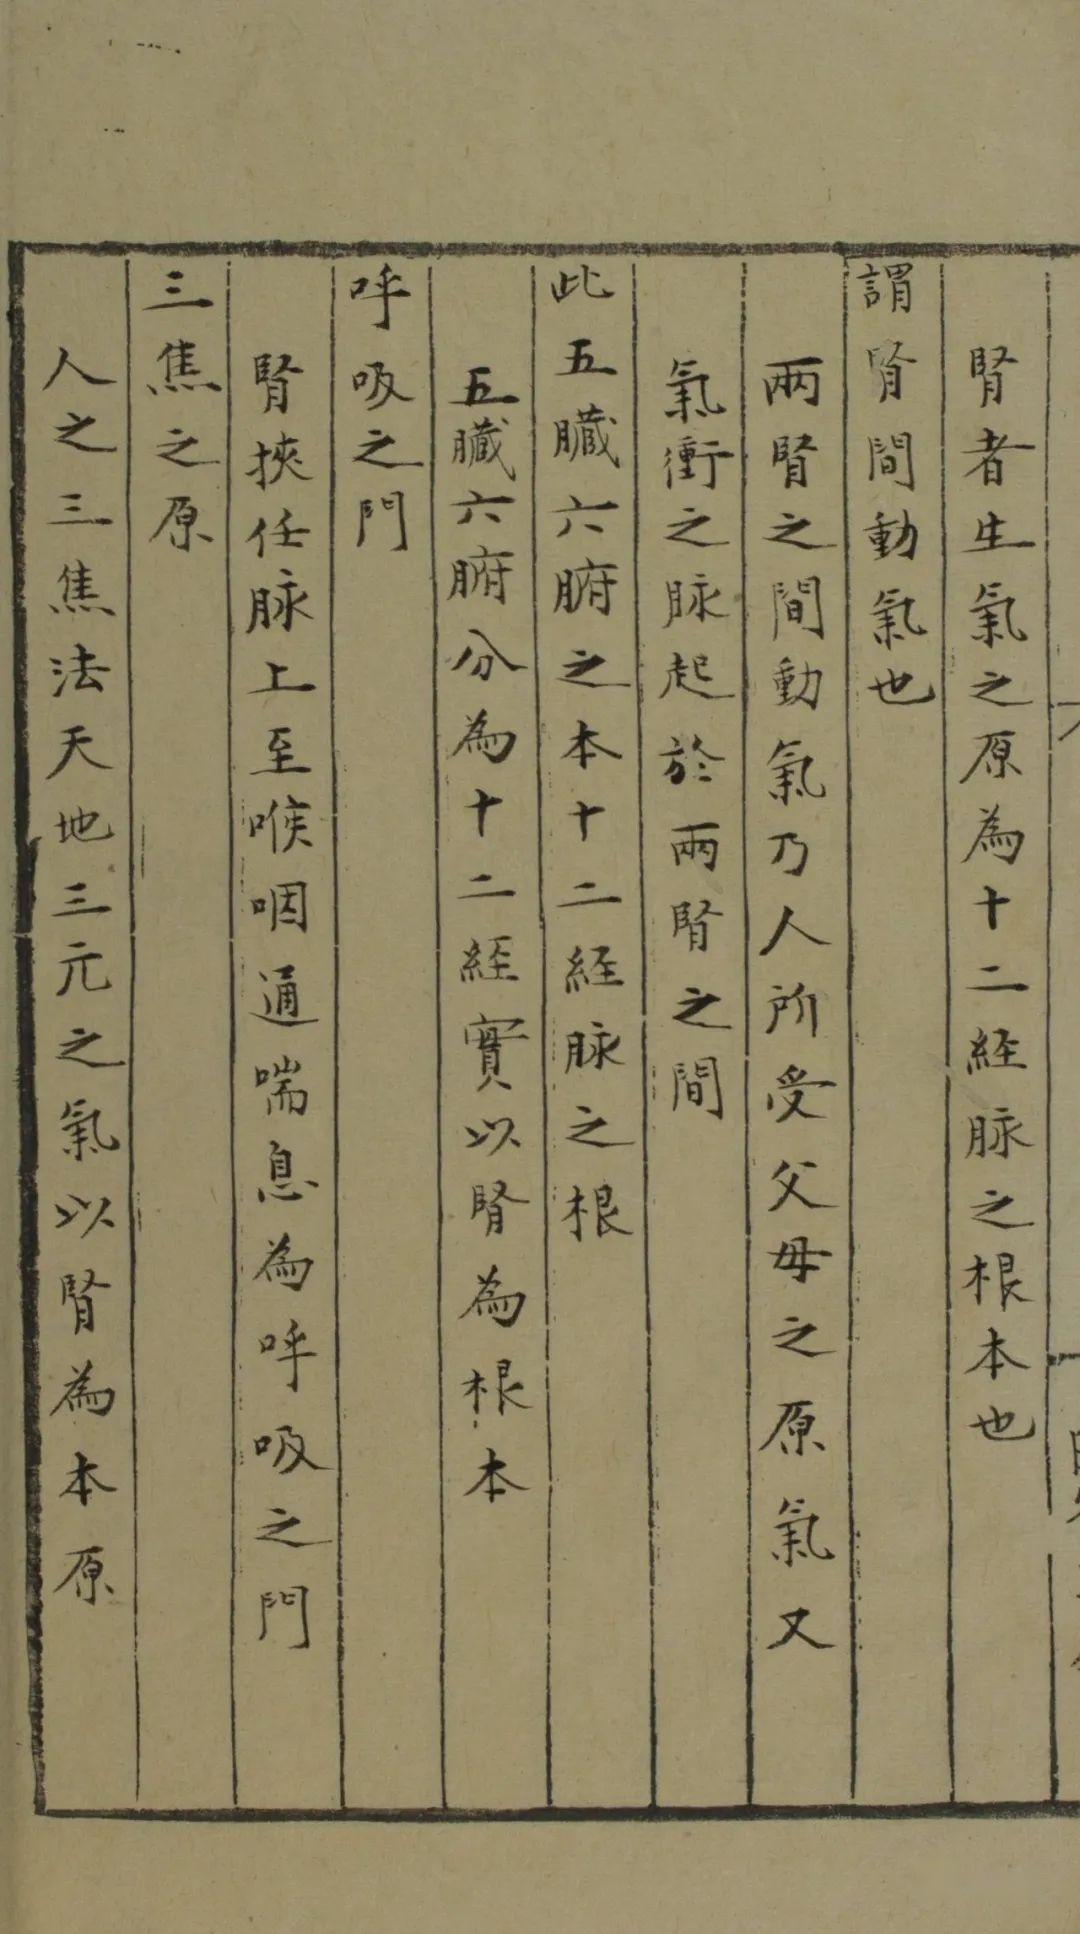 腎者生氣之原為十二経脉之根本也
謂腎間動氣也
兩腎之間動氣乃人所受父母之原氣又
氣衝之脉起於兩腎之間
此五臟六腑之本十二経脉之根
五臟六腑分為十二経實以腎為根本
呼吸之門
腎挾任脉上至喉咽通喘息為呼吸之門
三焦之原
人之三焦法天地三元之氣以腎為本原